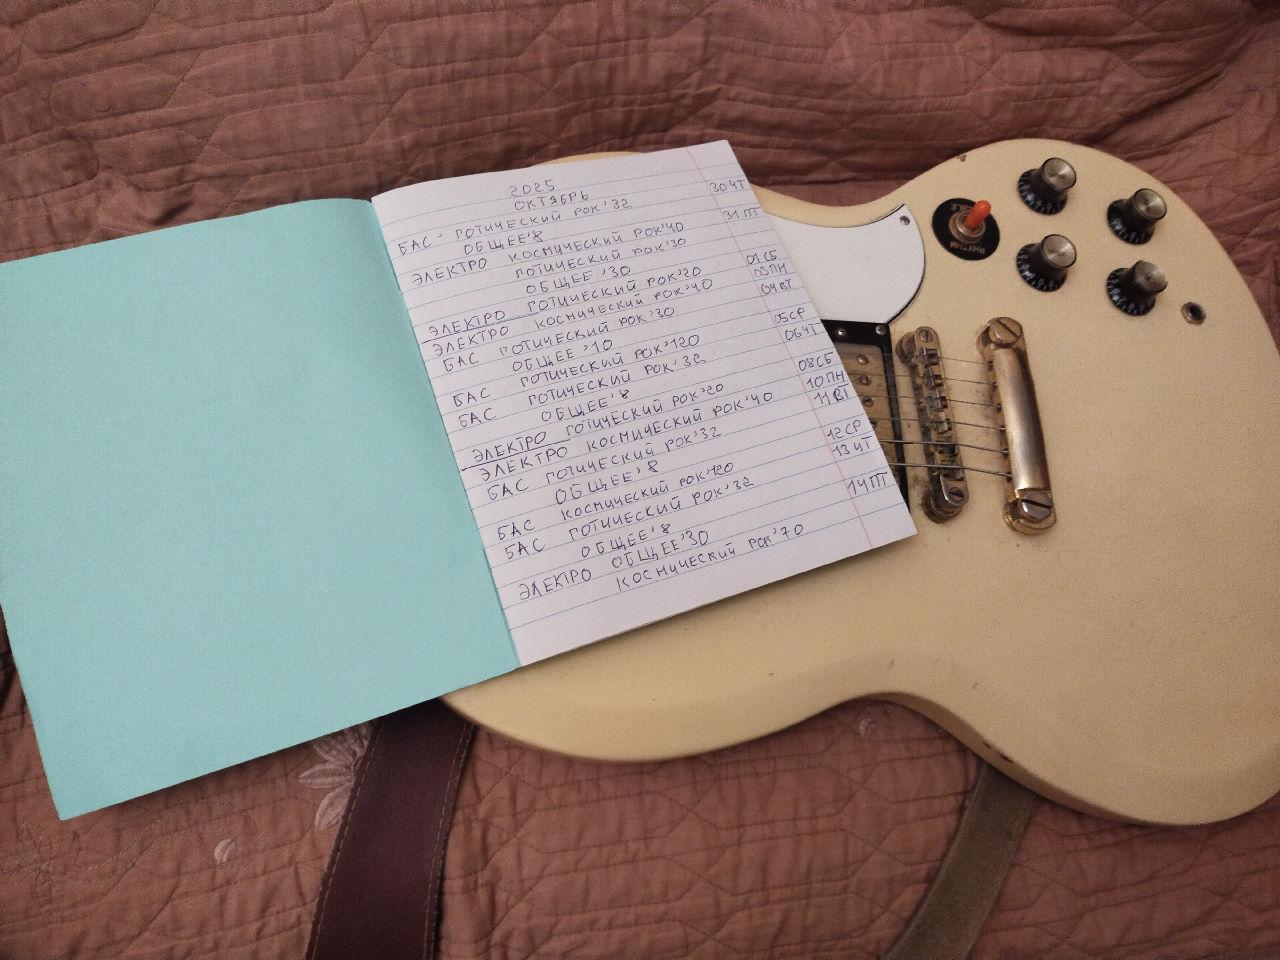 2025
ОКТЯБРЬ
БАС - ГОТИЧЕСКИЙ РОК'32 30 ЧТ
ОБЩЕЕ'8
ЭЛЕКТРО КОСМИЧЕСКИЙ РОК'40 31 ПТ
ГОТИЧЕСКИЙ РОК'30
ОБЩЕЕ '30
ЭЛЕКТРО ГОТИЧЕСКИЙ РОК'20 01 СБ
ЭЛЕКТРО КОСМИЧЕСКИЙ РОК'40 03 ПН
БАС ГОТИЧЕСКИЙ РОК'30 04 ВТ
ОБЩЕЕ '10
БАС ГОТИЧЕСКИЙ РОК'120 05 СР
БАС ГОТИЧЕСКИЙ РОК'32 06 ЧТ
ОБЩЕЕ'8
ЭЛЕКТРО ГОТИЧЕСКИЙ РОК'20 08 СБ
ЭЛЕКТРО КОСМИЧЕСКИЙ РОК'40 10 ПН
БАС ГОТИЧЕСКИЙ РОК'32 11 ВТ
ОБЩЕЕ'8
БАС КОСМИЧЕСКИЙ РОК'120 12 СР
БАС ГОТИЧЕСКИЙ РОК'32 13 ЧТ
ОБЩЕЕ'8
ЭЛЕКТРО ОБЩЕЕ'30 14 ПТ
КОСМИЧЕСКИЙ РОК'70
RHYTHM